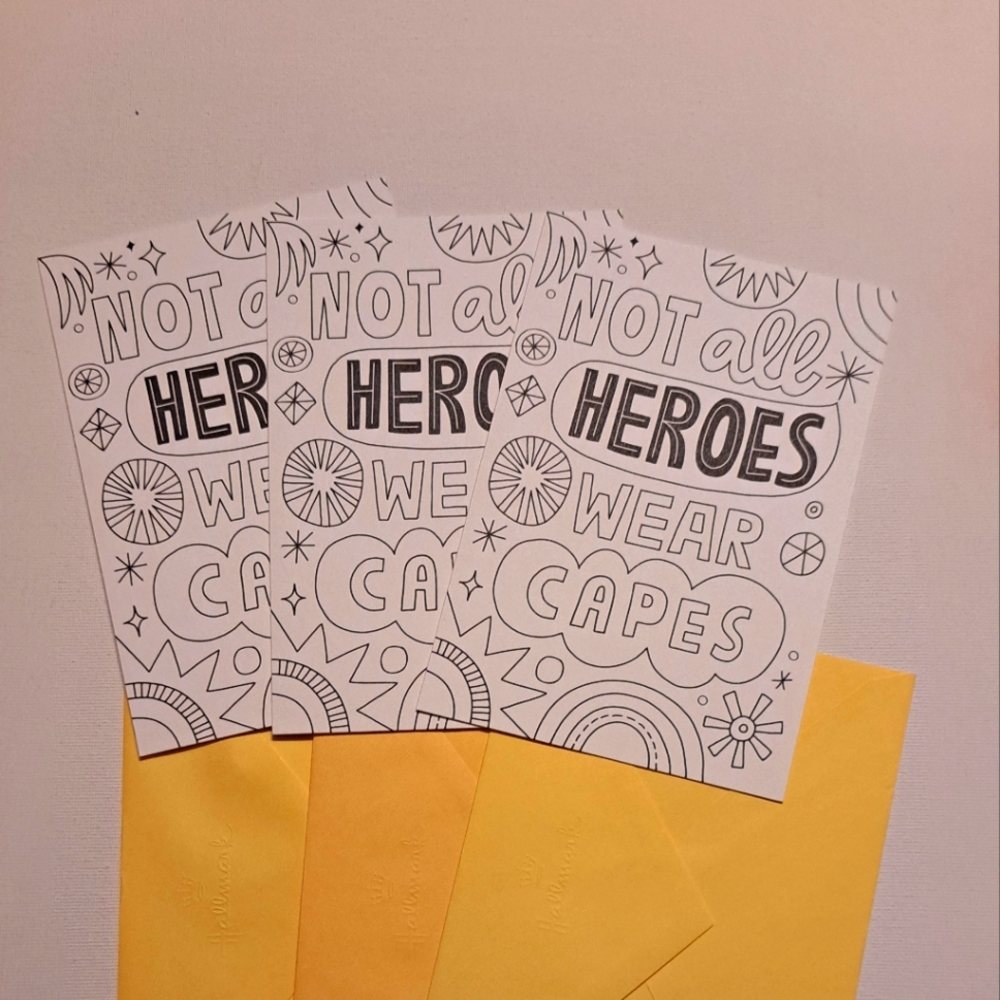 NOT a
HER
WE
CA
NOT al
HERO
WE
CA
NOT all
HEROES
WEAR
CAPES
Hallmark
Hallmark
Hallmark